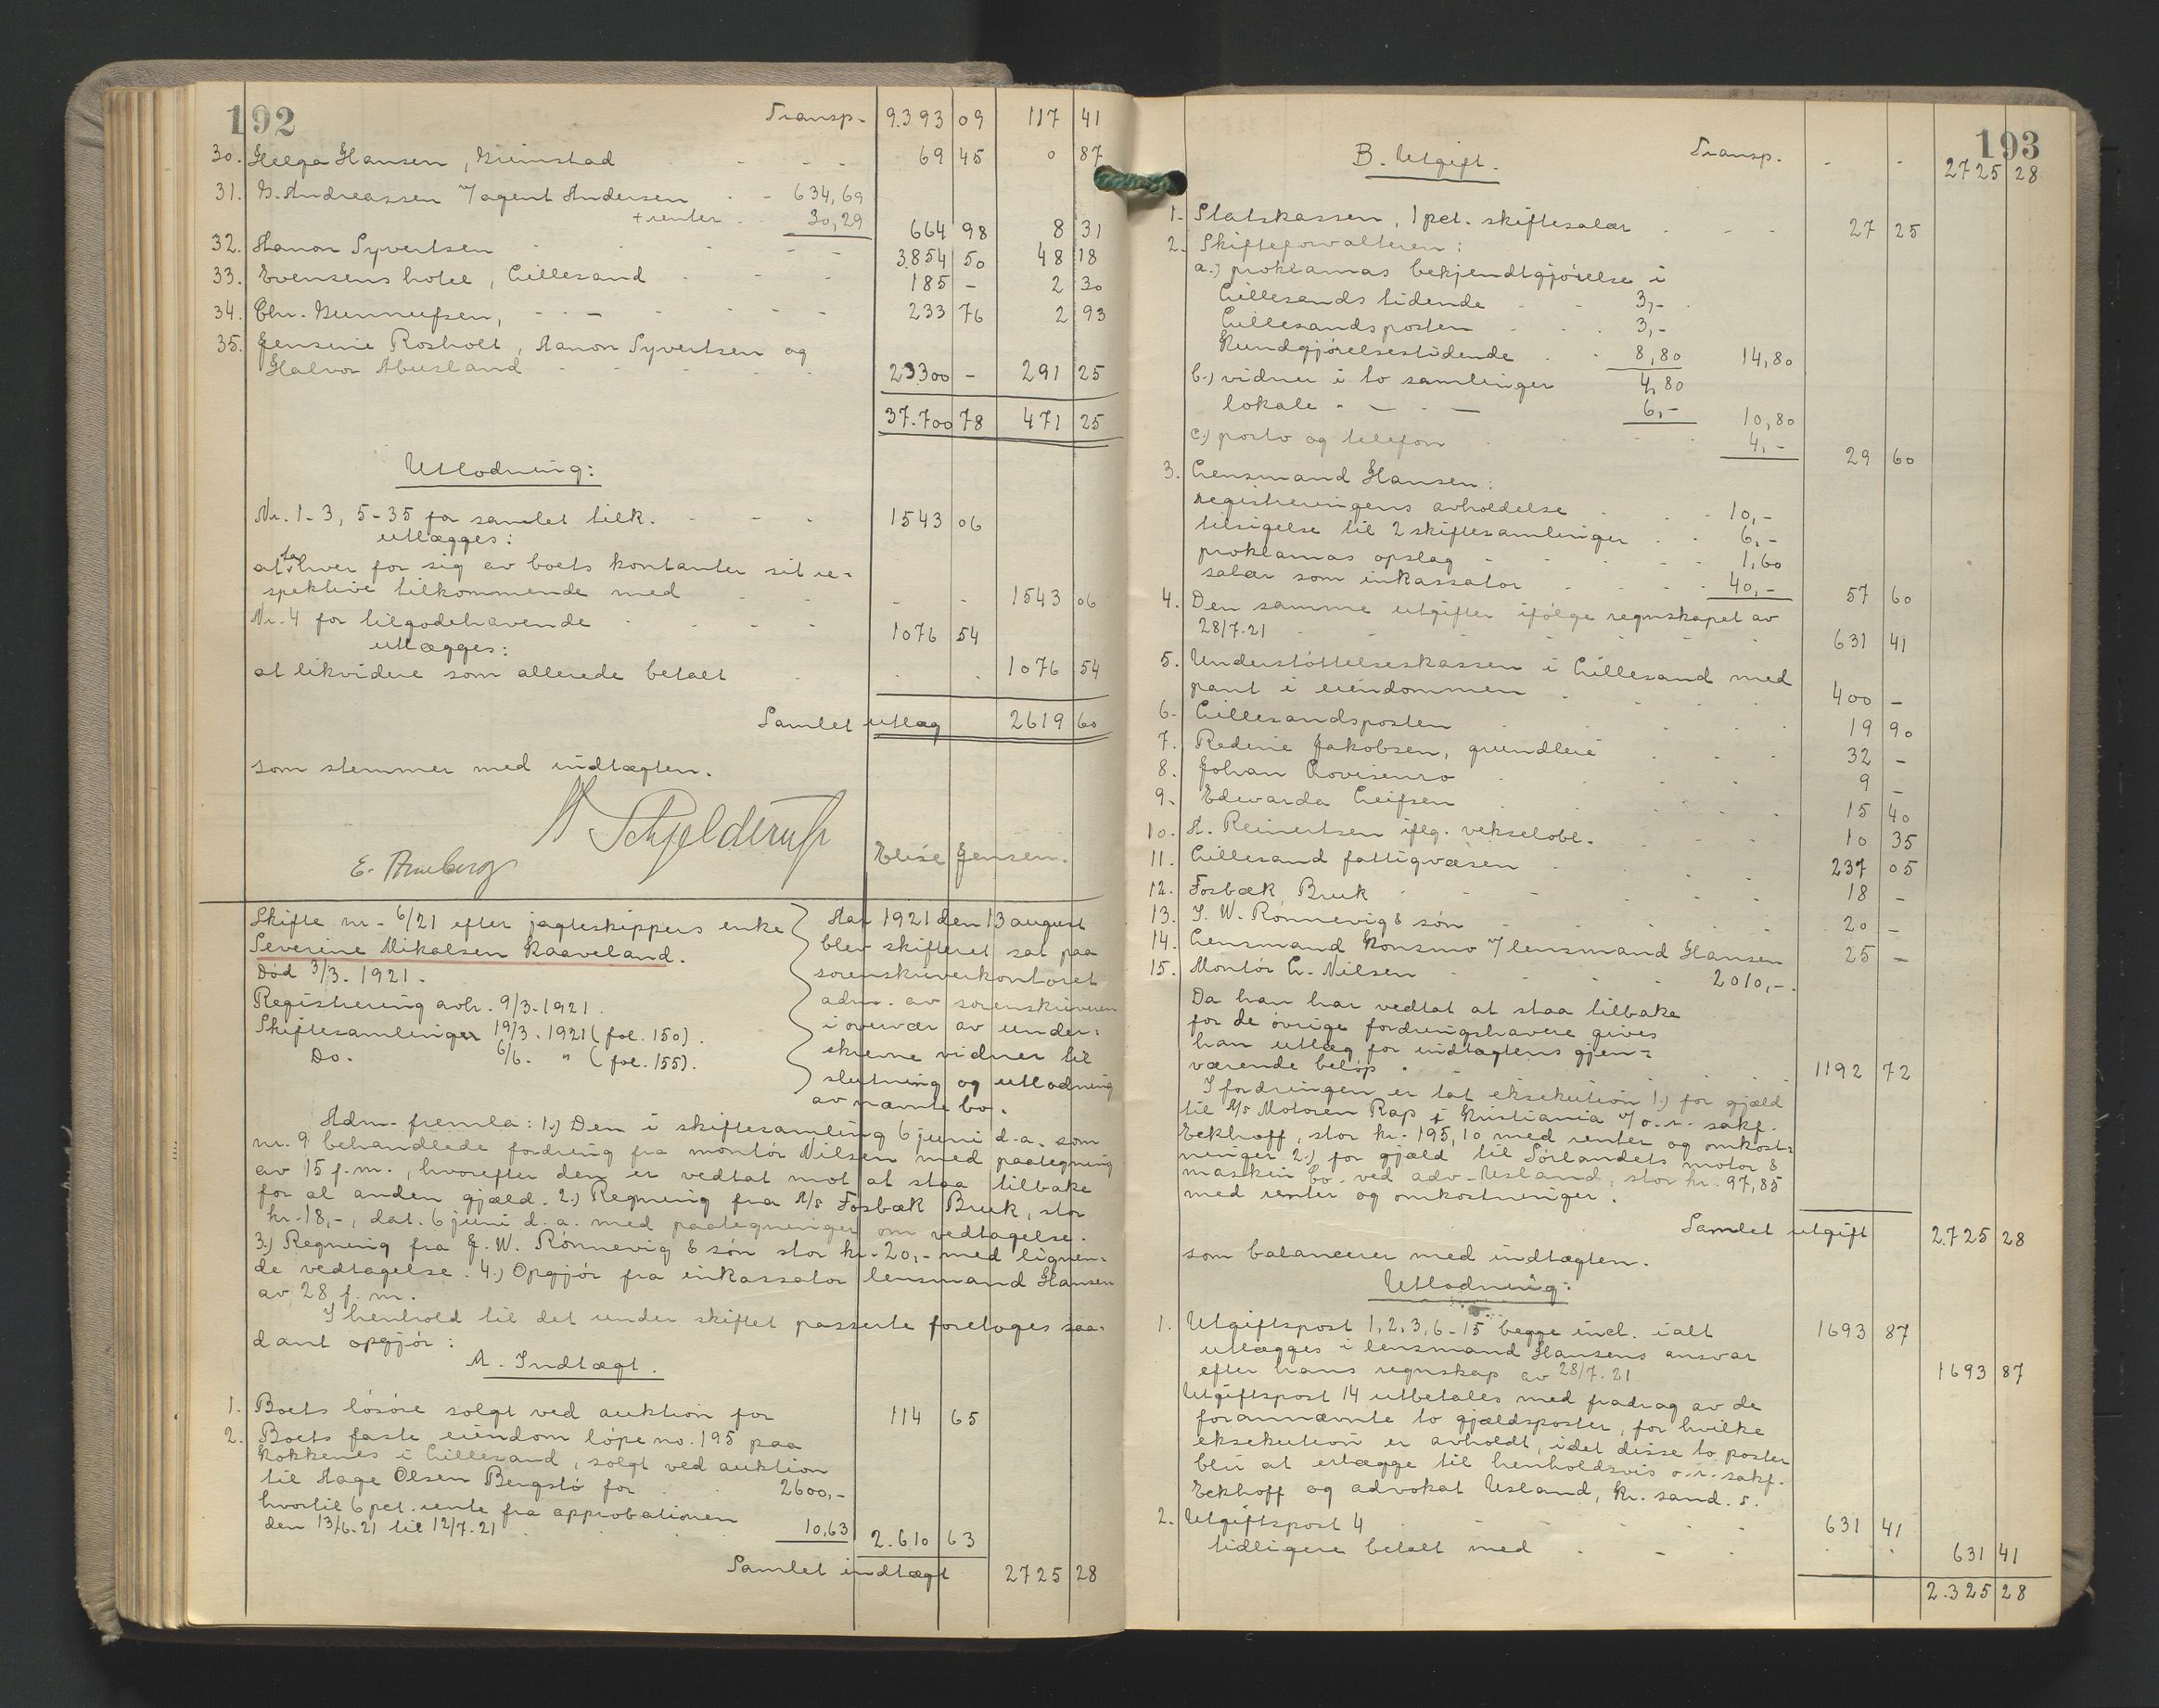 192
Transp. 9.393 09 117 41
30. Helga Hansen, Grimstad - - - 69 45 0 87
31. G. Andreassen v/ agent Andersen - - 634,69
+ renter . . 30,29 664 98 8 31
32. Aanon Syvertsen - - - 3.854 50 48 18
33. Evensens hotel, Lillesand - - - 185 - 2 30
34. Chr. Gunnufsen, - - - 233 76 2 93
35. Jensine Rosholt, Aanon Syvertsen og
Halvor Abusland - - - 23300 - 291 25
37.700 78 471 25
Utlodning:
Nr. 1-3, 5-35 for samlet tilk. - - - 1543 06
utlægges:
at ta hver for sig av boets kontanter sit re-
spektive tilkommende med - - - 1543 06
Nr. 4 for tilgodehavende - - - 1076 54
utlægges:
at likvidere som allerede betalt . . . 1076 54
Samlet utlæg 2619 60
som stemmer med indtægten.
Schjelderup
E. Elise Jensen.
Skifte nr. 6/21 efter jagteskippers enke
Severine Mikalsen Kaaveland.
Død 3/3. 1921.
Registrering avh. 9/3. 1921.
Skiftesamlinger 19/3. 1921 (fol. 150).
Do. 6/6. " (fol. 155).
Aar 1921 den 13 august
blev skifteret sat paa
sorenskriverkontoret
adm. av sorenskriveren
i overvær av under-
skrevne vidner til
slutning og utlodning
av nævnte bo.
Adm. fremla: 1.) Den i skiftesamling 6 juni d.a. som
nr. 9 behandlede fordring fra montør Nilsen med paategning
av 15 f.m., hvorefter den er vedtat mot at staa tilbake
for al anden gjæld. 2.) Regning fra A/s Fosbæk Bruk, stor
kr. 18,-, dat. 6 juni d.a. med paategninger om vedtagelse.
3.) Regning fra J. W. Rønnevig & søn stor kr. 20,- med lignen-
de vedtagelse. 4.) Opgjør fra inkassator lensmand Hansen
av 28 f.m.
I henhold til det under skiftet passerte foretoges saa-
dant opgjør:
A. Indtægt.
1. Boets løsøre solgt ved auktion for 114 65
2. Boets faste eiendom løpe no. 195 paa
Kokkenes i Lillesand, solgt ved auktion
til Aage Olsen Bergstø for . . 2600,-
hvortil 6 pct. rente fra approbationen
den 13/6-21 til 12/7-21 . . . 10,63 2.610 63
Samlet indtægt 2725 28
193
B. Utgift. Transp. - - 2725 28
1. Statskassen, 1 pct. skiftesalær . - - - 27 25
2. Skifteforvalteren:
a.) proklamas bekjendtgjørelse i
Lillesands tidende - - 3,-
Lillesandsposten - . . 3,-
Kundgjørelsestidende . . 8,80 14,80
b.) vidner i to samlinger 4,80
lokale - — - — 6,- 10,80
c.) porto og telefon . . . 4,- 29 60
3. Lensmand Hansen:
registreringens avholdelse . . . 10,-
tilsigelse til 2 skiftesamlinger . . 6,-
proklamas opslag - - - 1,60
salær som inkassator . . . 40,- 57 60
4. Den samme utgifter ifølge regnskapet av
28/7.21 - - - 631 41
5. Understøttelseskassen i Lillesand med
pant i eiendommen . . . 400 -
6. Lillesandsposten . . . 19 90
7. Rederie Jakobsen, grundleie . . . 32 -
8. Johan . . . 9 -
9. Edvarda Leifsen . . . 15 40
10. A. Reinertsen iflg. vekselobl. - - - 10 35
11. Lillesand fattigvæsen . . . 237 05
12. Fosbæk Bruk - - - 18 -
13. J. W. Rønnevig & søn . . . 20 -
14. Lensmand Konsmo v/ lensmand Hansen 25 -
15. Montør L. Nilsen - - - 2010,-.
Da han har vedtat at staa tilbake
for de øvrige fordringshavere gives
han utlæg for indtægtens gjen-
værende beløp . . . 1192 72
I fordringen er tat eksekution 1.) for gjæld
til A/s Motoren Rap i Kristiania v/ o.r. sakf.
Eckhoff, stor kr. 195,10 med renter og omkost-
ninger 2.) for gjæld til Sørlandets motor &
maskin Co. ved adv. Usland, stor kr. 97,85
med renter og omkostninger.
Samlet utgift 2.725 28
som balancerer med indtægten.
Utlodning:
1. Utgiftspost 1, 2, 3, 6-15 begge incl. ialt 1693 87
utlægges i lensmand Hansens ansvar
efter hans regnskap av 28/7.21 1693 87
Utgiftspost 14 utbetales med fradrag av de
forannævnte to gjældsposter, for hvilke
eksekution er avholdt, idet disse to poster
blir at erlægge til henholdsvis o.r. sakf.
Eckhoff og advokat Usland, Kr.sand. s.
2. Utgiftspost 4 - - - 631 41
tidligere betalt med . - - . . 631 41
2.325 28